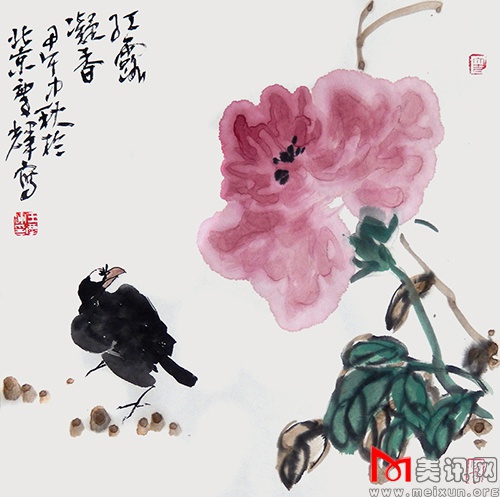 红露
凝香
甲午中秋於
北京雪辉写
美讯网
www.meixun.org